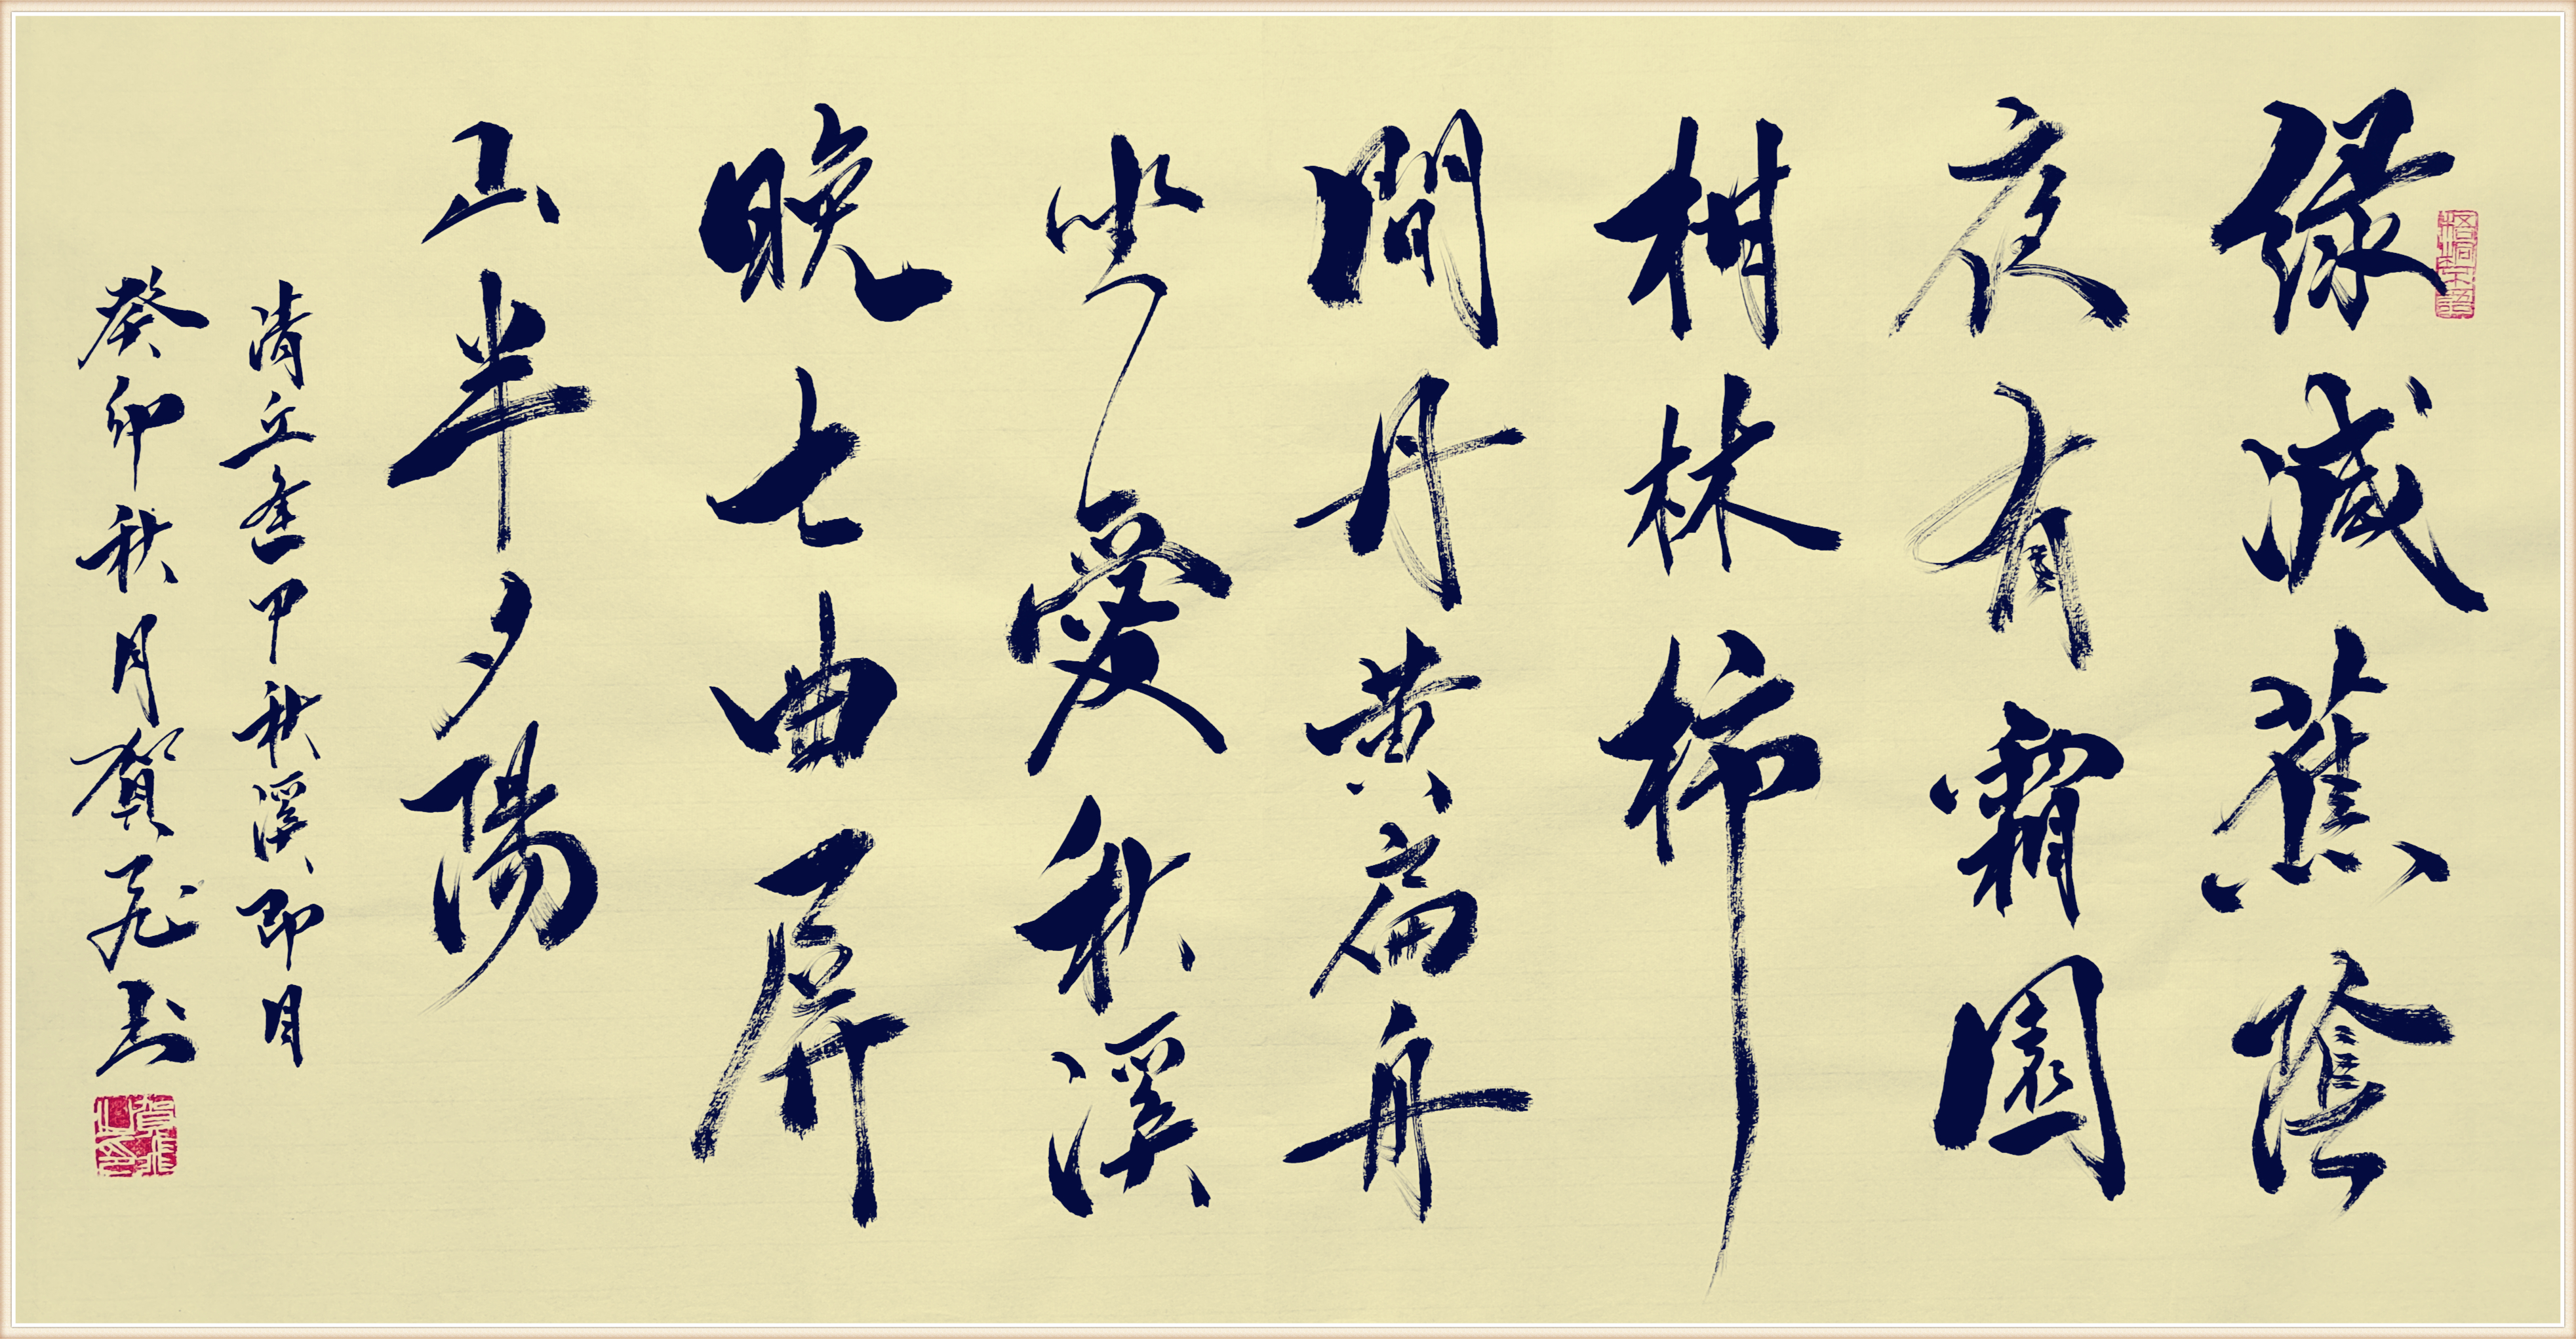 緑減蕉陰
夜有霜園
柑林柿
間丹黄扁舟
坐愛秋溪
晚七曲屏
山半夕陽
清丘逢甲秋溪即目
癸卯秋月賀飛書